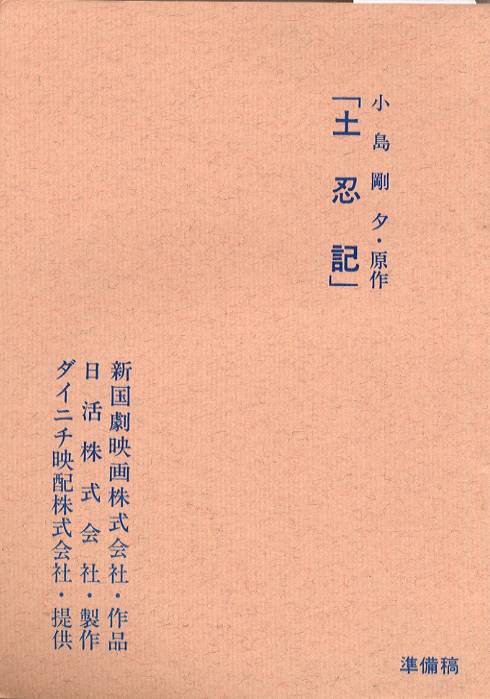 小島剛夕・原作
「土忍記」
新国劇映画株式会社・作品
日活株式会社・製作
ダイニチ映配株式会社・提供
準備稿